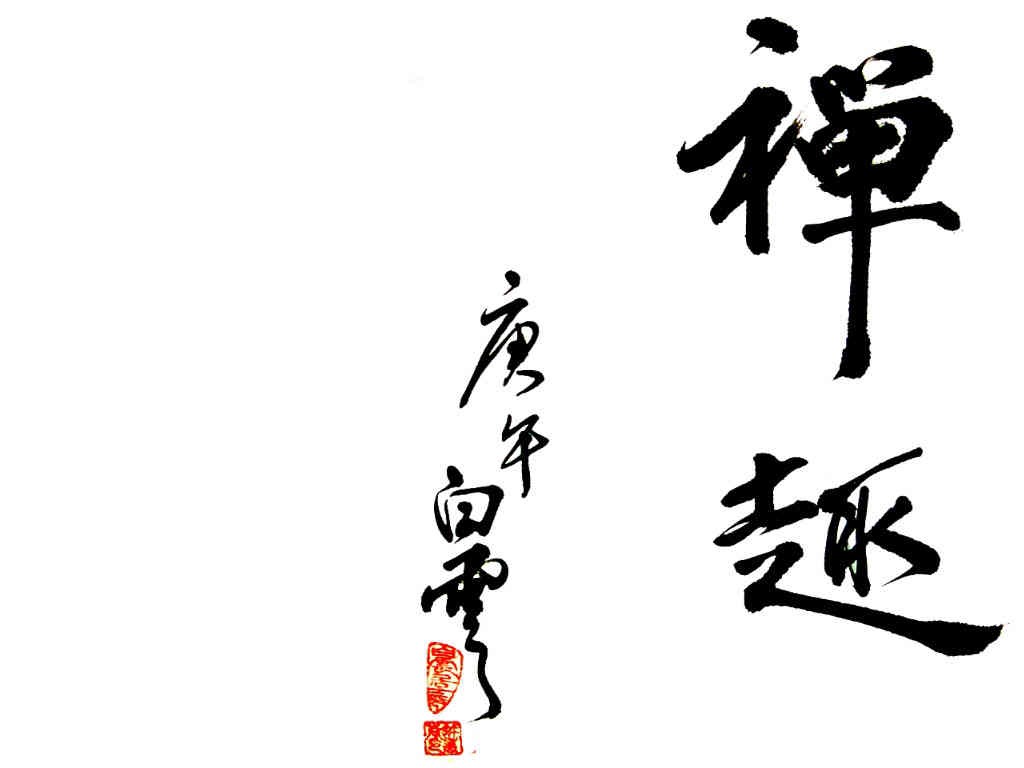 禪趣
庚午白雲